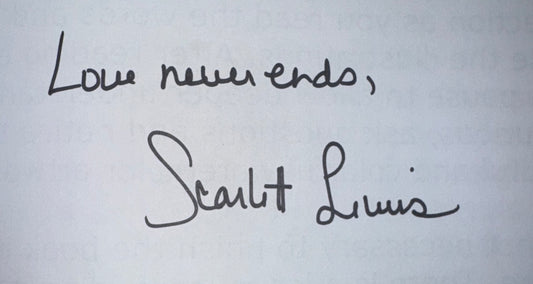 Love never ends,
Scarlet Lewis